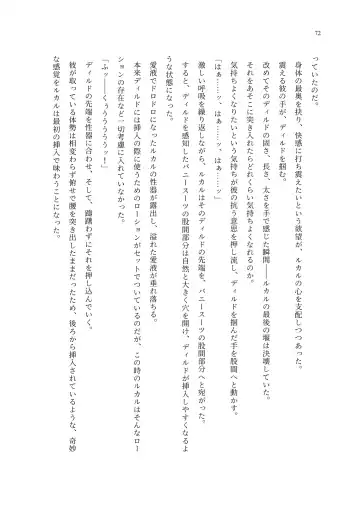 72
っていたのだ。
身体の最奥を抉り、快感に打ち震えたいという欲望が、ルカルの心を支配しつつあった。
震える彼の手が、ディルドを掴む。
改めてそのディルドの固さ、長さ、太さを手で感じた瞬間――ルカルの最後の堰は決壊していた。
それをあそこに突き入れたらどれくらい気持ちよくなれるのか。
気持ちよくなりたいという気持ちが彼の抗う意思を押し流し、ディルドを掴んだ手を股間へと動かす。
「はぁ……ッ、はぁ……ッ」
激しい呼吸を繰り返しながら、ルカルはそのディルドの先端を、バニースーツの股間部分へと宛がった。
すると、ディルドを感知したバニースーツの股間部分は自然と大きく穴を開け、ディルドが挿入しやすくなるよ
うな状態になった。
愛液でドロドロになったルカルの性器が露出し、溢れた愛液が垂れ落ちる。
本来ディルドには挿入の際に使うためのローションがセットでついているのだが、この時のルカルはそんなロー
ションの存在など一切考慮に入れていなかった。
「ふッ――くぅうううううッ！」
ディルドの先端を性器に合わせ、そして、躊躇わずにそれを押し込んでいく。
彼が取っている体勢は変わらず俯せで腰を突き出したままだったため、後ろから挿入されているような、奇妙
な感覚をルカルは最初の挿入で味わうことになった。